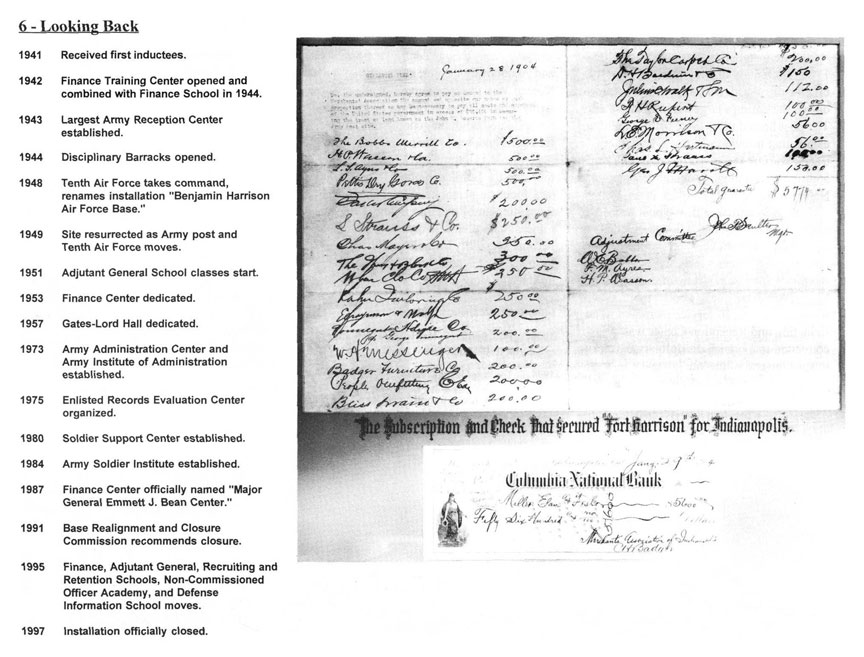 6 - Looking Back
1941 Received first inductees.
1942 Finance Training Center opened and
combined with Finance School in 1944.
1943 Largest Army Reception Center
established.
1944 Disciplinary Barracks opened.
1948 Tenth Air Force takes command,
renames installation "Benjamin Harrison
Air Force Base."
1949 Site resurrected as Army post and
Tenth Air Force moves.
1951 Adjutant General School classes start.
1953 Finance Center dedicated.
1957 Gates-Lord Hall dedicated.
1973 Army Administration Center and
Army Institute of Administration
established.
1975 Enlisted Records Evaluation Center
organized.
1980 Soldier Support Center established.
1984 Army Soldier Institute established.
1987 Finance Center officially named "Major
General Emmett J. Bean Center."
1991 Base Realignment and Closure
Commission recommends closure.
1995 Finance, Adjutant General, Recruiting and
Retention Schools, Non-Commissioned
Officer Academy, and Defense
Information School moves.
1997 Installation officially closed.
January 28 1904
The Bobbs Merrill Co. $500.00
H.P. Wasson & Co. 500.00
L.S. Ayres & Co 500.00
Pettis Dry Goods Co. 500.00
$200.00
L Strauss & Co. $250.00
350.00
300.00
250.00
Kahn Tailoring Co 250.00
250.00
200.00
W.A. Messenger 100.00
Badger Furniture Co 200.00
People Outfitting Co 200.00
Bliss Swain & Co 200.00
Taylor Carpet Co. $200.00
D.H. Baldwin & Co $150
112.00
100.00
100.00
5600
56.00
Geo. J. 153.00
Total guarantee $5779.-
Adjustment Committee
F. M. Ayres
H. P. Wasson
The Subscription and Check that secured "Fort Harrison" for Indianapolis.
Columbia National Bank
5600
Fifty Six Hundred
Merchants Association of Indianapolis